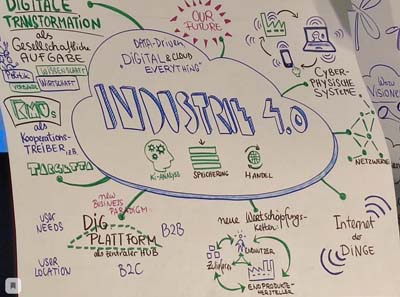 DIGITALE
TRANSFORMATION
als
GESELLSCHAFTLICHE
AUFGABE
PUBLIK
WISSENSCHAFT
VERBÄNDE
WIRTSCHAFT
KMUs
als
Kooperations-
TREIBER, z.B.
USER
NEEDS
USER
LOCATION
OUR
FUTURE
DATA-DRIVEN
"DIGITAL & CLOUD
EVERYTHING"
INDUSTRIE 4.0
KI-ANALYSE
SPEICHERUNG
HANDEL
CYBER-
PHYSISCHE
SYSTEME
WOZU
VISIONE
NETZWERKE
new
BUSINESS
PARADIGM:
DiG
PLATTFORM
als zentraler HUB
B2B
B2C
neue Wertschöpfungs-
ketten:
Zulieferer
ENDPRODUKTE-
HERSTELLER
Internet
der
DiNGE